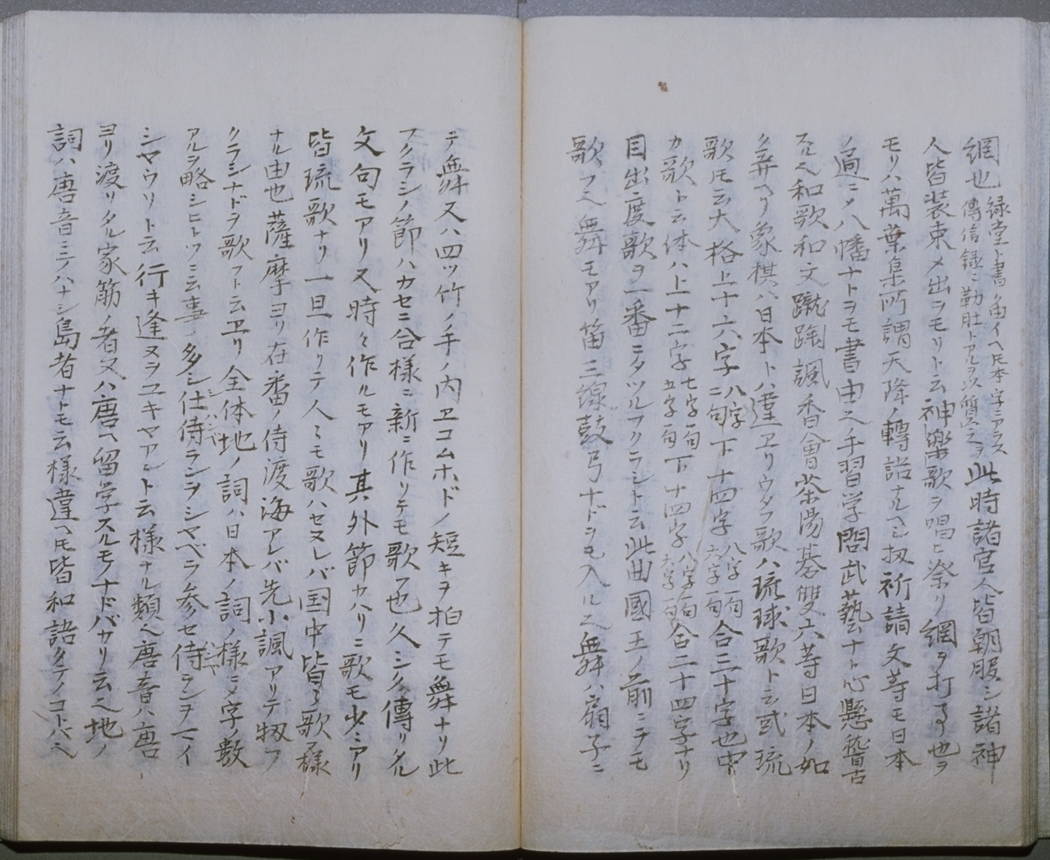 網也
録堂ト書ク由イヘ𪜈本字ニアラス
傳信録ニ勒肚トアルヲ以質スヘ
此時諸官人皆朝服シ諸神
人皆装束〆出ヲモリト云神樂歌ヲ唱ヒ祭リ網ヲ打
モリハ萬葉集所謂天降ノ轉語ナル 扨祈請文等モ日本
ノ 八幡ナトヲモ書由也手習学問武藝ナト心懸稽古
スル也和歌和文蹴鞠諷香會茶湯碁雙六等日本ノ如
ク弄ヘリ象棋ハ日本トハ違ヱリウタフ歌ハ琉球歌ト云或琉
歌𪜈云大格上十六字
八字
二句
下十四字
八字一句
六字一句
合三十字也中
カ歌ト云体ハ上十二字
七字一句
五字一句
下十四字
八字一句
六字一句
合二十四字ナリ
目出度歌ヲ一番ニタツルフクラシト云此曲國王ノ前ニテモ
歌フ也舞モアリ笛三線鼓弓ナドヲモ入ル也舞ハ扇子ニ
テ舞又ハ四ツ竹ノ手ノ内ヱコムホドノ短キヲ拍テモ舞ナリ此
フクラシノ節ハカセニ合様ニ新ニ作リテモ歌フ也久シク傳リタル
文句モアリ又時々作ルモアリ其外節カハリニ歌モ少々アリ
皆琉歌ナリ一旦作リテ人々モ歌ハセヌレバ国中皆々歌様
ナル由也薩摩ヨリ在番ノ侍渡海アレバ先小諷アリテ扨フ
クラシナドヲ歌フト云ヱリ全体地ノ詞ハ日本ノ詞ノ様ニ〆字ノ数
アルヲ略シヒトツニ云事多シ仕侍ランヲシマベラ参セ侍ランヲマイ
シマウリト云行キ逢ヌヲユキヤアント云様ナル類也唐音ハ唐
ヨリ渡リタル家筋ノ者又ハ唐ヘ留学スルモノナドバカリ云也地ノ
詞ハ唐音ニテハナシ島者ナトモ云様違ヘ𪜈皆和語タテノコトバ也